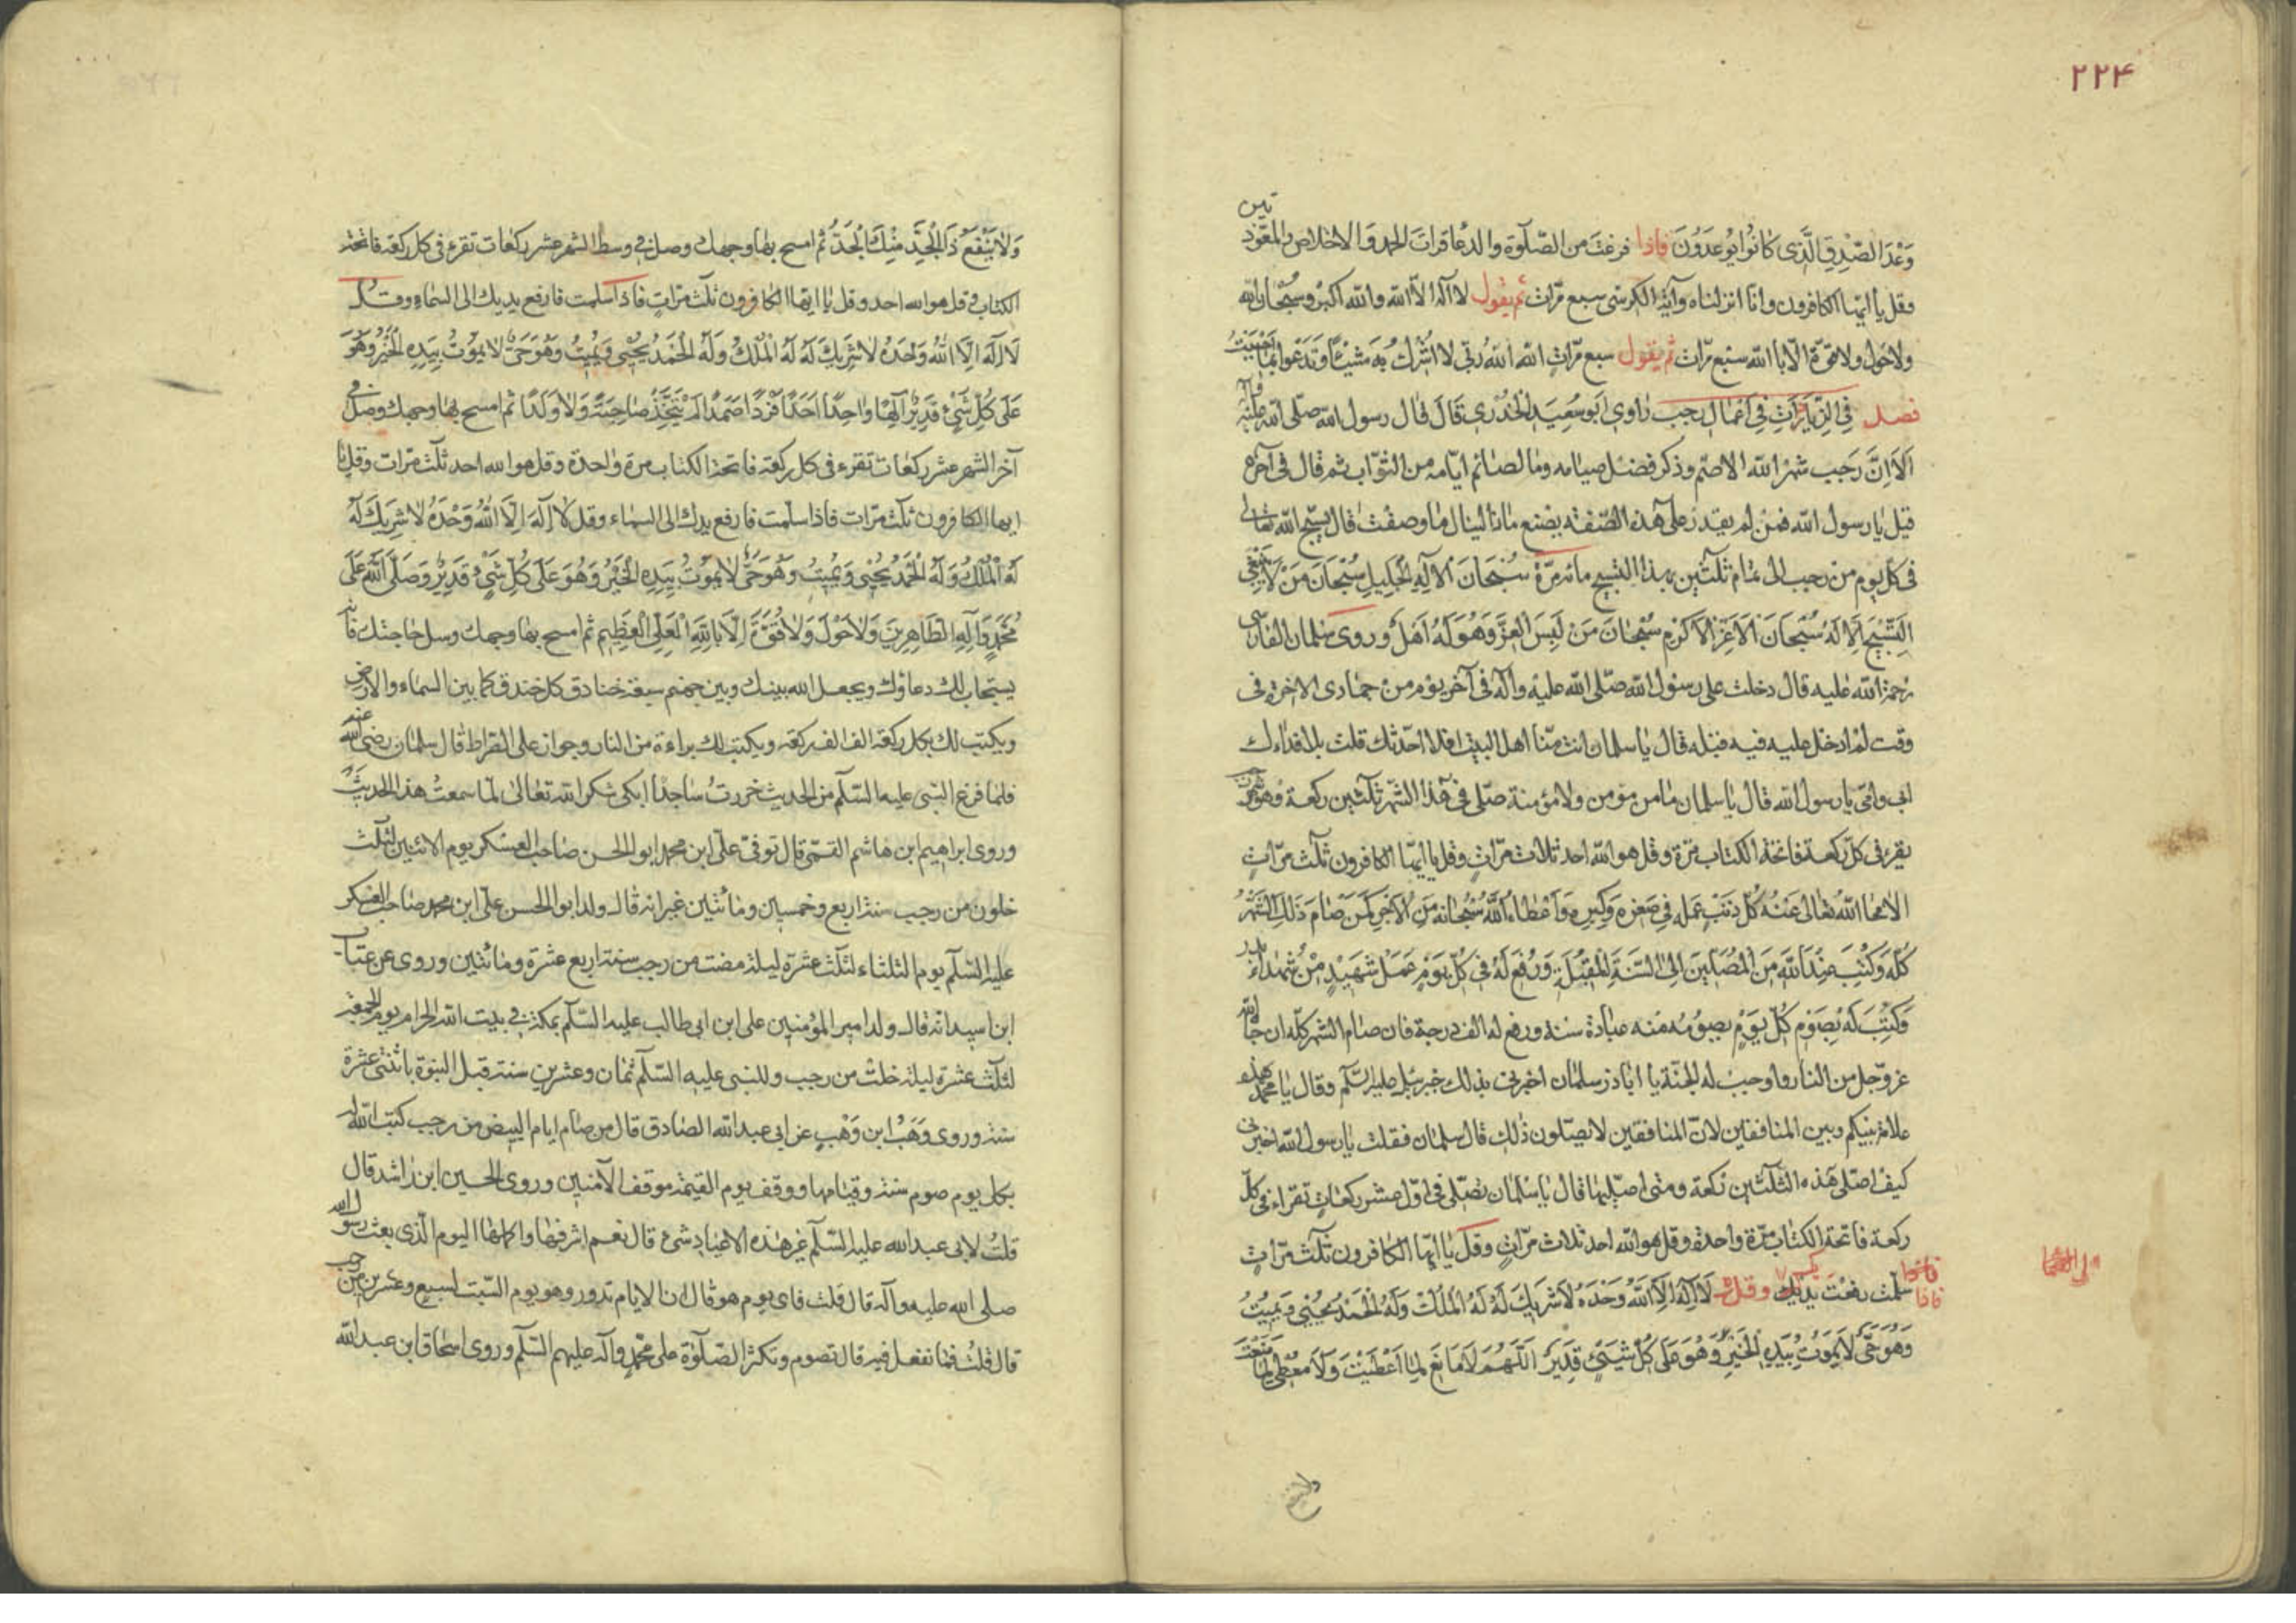 ٢٢٤
وَعْدَ الصِّدْقِ الَّذِی كَانُوا يُوعَدُونَ فاذا فرغت من الصّلوة والدعا قرات الحمد والاخلاص والمعوذتين
وقل يا ايّها الكافرون وانا انزلناه وآية الكرسی سبع مرّات ثم يقول لا اله الا الله والله اكبر وسبحان الله
ولا حول ولا قوّة الّا باالله سبع مرّات ثم يقول سبع مرّات الله الله ربّی لا اشرك به شيئًا وتدعوا بما احببت
فصل فی الزيارات فی اعمال رجب راوی ابو سعيد الخدری قال قال رسول الله صلّی الله عليه وآله
اَلَا اِنَّ رَجب شهر الله الاصمّ وذكر فضل صيامه وما لصائم ايّامه من الثوّاب ثم قال فی آخره
قيل يا رسول الله فمن لم يقدر علی هذه الصّفة يصنع ماذا لينال ما وصفت قال يسبّح الله تعالی
فی كل يوم من رجب الی تمام ثلثين بهذا التسبيح مائة مرّة سُبْحَانَ الْاِلٰهِ الْجَلِيلِ سُبْحَانَ مَنْ لَا يَنْبَغِی
التَّسْبِيحُ اِلَّا لَهُ سُبْحَانَ الْاَعَزِّ الْاَكْرَمِ سُبْحَانَ مَنْ لَبِسَ الْعِزَّ وَهُوَ لَهُ اَهْلٌ وروی سلمان الفارسی
رحمة الله عليه قال دخلت علی رسول الله صلّی الله عليه وآله فی آخر يوم من جمادی الاخرة فی
وقت لم ادخل عليه فيه قبله قال يا سلمان انت منّا اهل البيت افلا احدّثك قلت بلا فداءك
ابی وامّی يا رسول الله قال يا سلمان ما من مؤمن ولا مؤمنة صلّی فی هذا الشهر ثلثين ركعة وهو شهر رجب
يقرء فی كلّ ركعة فاتحة الكتاب مرّة وقل هو الله احد ثلاث مرّات وقل يا ايّها الكافرون ثلث مرّاتٍ
الا محا الله تعالی عنه كلّ ذنب عمله فی صغره وكبره واعطاه الله سبحانه من الاجر كمن صام ذلك الشهر
كلّه وكتب عند الله من المصلّين الی السنة المقبلة ورفع له فی كلّ يوم عمل شهيد من شهداء بدر
وكتب له بصوم كلّ يوم يصومه منه عبادة سنة ورفع له الف درجة فان صام الشهر كلّه انجاه الله
عزوّجل من النار واوجب له الجنّة يا اباذر سلمان اخبرنی بذلك جبرئيل عليه السّلم وقال يا محمد هذه
علامة بينكم وبين المنافقين لانّ المنافقين لا يصلّون ذٰلك قال سلمان فقلت يا رسول الله اخبرنی
كيف اصلّی هذه الثلثين ركعة ومتی اصلّيها قال يا سلمان تصلّی فی اوّل عشر ركعات تقراء فی كلّ
ركعة فاتحة الكتاب مرّة واحدة وقل هو الله احد ثلاث مرّات وقل يا ايّها الكافرون ثلث مرّاتٍ
فاذا سلّمت رفعت يديك وقل لَا اِلٰهَ اِلَّا اللهُ وَحْدَهُ لَا شَرِيكَ لَهُ لَهُ الْمُلْكُ وَلَهُ الْحَمْدُ يُحْيِی وَيُمِيتُ
وَهُوَ حَیٌّ لَا يَمُوتُ بِيَدِهِ الْخَيْرُ وَهُوَ عَلَی كُلِّ شَیْءٍ قَدِيرٌ اَللّٰهُمَّ لَا مَانِعَ لِمَا اَعْطَيْتَ وَلَا مُعْطِیَ لِمَا مَنَعْتَ
وَلَا يَنْفَعُ ذَا الْجَدِّ مِنْكَ الْجَدُّ ثم امسح بها وجهك وصل فی وسط الشهر عشر ركعات تقرء فی كل ركعة فاتحة
الكتاب وقل هو الله احد وقل يا ايها الكافرون ثلث مرّات فاذا سلمت فارفع يديك الی السماء وقل
لَا اِلٰهَ اِلَّا اللهُ وَحْدَهُ لَا شَرِيكَ لَهُ لَهُ الْمُلْكُ وَلَهُ الْحَمْدُ يُحْيِی وَيُمِيتُ وَهُوَ حَیٌّ لَا يَمُوتُ بِيَدِهِ الْخَيْرُ وَهُوَ
عَلَی كُلِّ شَیْءٍ قَدِيرٌ اِلٰهًا وَاحِدًا اَحَدًا فَرْدًا صَمَدًا لَمْ يَتَّخِذْ صَاحِبَةً وَلَا وَلَدًا ثم امسح بها وجهك وصل فی
آخر الشهر عشر ركعات تقرء فی كل ركعة فاتحة الكتاب مرة واحدة وقل هو الله احد ثلث مرّات وقل يا
ايها الكافرون ثلث مرّات فاذا سلّمت فارفع يدك الی السماء وقل لَا اِلٰهَ اِلَّا اللهُ وَحْدَهُ لَا شَرِيكَ لَهُ
لَهُ الْمُلْكُ وَلَهُ الْحَمْدُ يُحْيِی وَيُمِيتُ وَهُوَ حَیٌّ لَا يَمُوتُ بِيَدِهِ الْخَيْرُ وَهُوَ عَلَی كُلِّ شَیْءٍ قَدِيرٌ وَصَلَّی اللهُ عَلَی
مُحَمَّدٍ وَآلِهِ الطَّاهِرِينَ وَلَا حَوْلَ وَلَا قُوَّةَ اِلَّا بِاللهِ الْعَلِیِّ الْعَظِيمِ ثم امسح بها وجهك وسل حاجتك فانه
يستجاب لك دعاؤك ويجعل الله بينك وبين جهنم سبعة خنادق كل خندق كما بين السماء والارض
ويكتب لك بكل ركعة الف الف ركعة ويكتب لك براءة من النار وجواز علی الصراط قال سلمان رضی الله عنه
فلما فرغ النبی عليه السّلم من الحديث خررت ساجدًا ابكی شكرا لله تعالی لما سمعت هذا الحديث
وروی ابراهيم ابن هاشم القمّی قال توفّی علی ابن محمد ابو الحسن صاحب العسكر يوم الاثنين لثلث
خلون من رجب سنة اربع وخمسين ومائتين غير انه قال ولد ابو الحسن علی ابن محمد صاحب العسكر
عليه السّلم يوم الثلثاء لثلث عشرة ليلة مضت من رجب سنة اربع عشرة ومائتين وروی عن عتاب
ابن اسيد انه قال ولد امير المؤمنين علی ابن ابی طالب عليه السّلم بمكة فی بيت الله الحرام يوم الجمعة
لثلث عشرة ليلة خلت من رجب وللنبی عليه السّلم ثمان وعشرين سنة قبل النبوّة باثنتی عشرة
سنة وروی وَهْب ابن وَهْبٍ عن ابی عبد الله الصادق قال من صام ايام البيض من رجب كتب الله له
بكل يوم صوم سنة وقيامها ووقف يوم القيمة موقف الآمنين وروی الحسين ابن راشد قال
قلت لابی عبد الله عليه السّلم غير هذه الاعياد شیء قال نعم اشرفها واكملها اليوم الّذی بعث رسول الله
صلی الله عليه وآله قال قلت فای يوم هو قال ان الايام تدور وهو يوم السّبت لسبع وعشرين من رجب
قال قلت فما نفعل فيه قال تصوم وتكثر الصّلوة علی محمّدٍ وآله عليهم السّلم وروی اسحاق ابن عبد الله